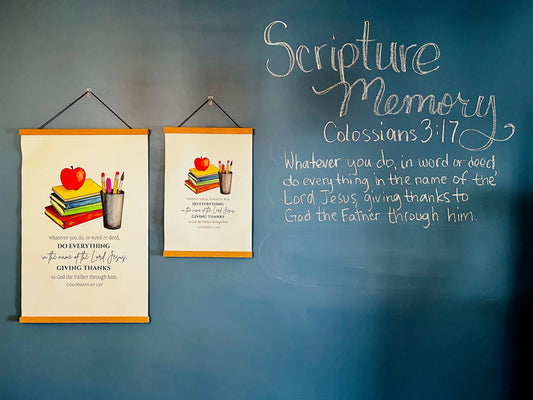 Whatever you do, in word or deed,
DO EVERYTHING
in the name of the Lord Jesus,
GIVING THANKS
to God the Father through him.
COLOSSIANS
DO EVERYTHING
in the name of the Lord Jesus,
GIVING THANKS
to God the Father through him.
Scripture
Memory
Colossians 3:17
Whatever you do, in word or deed
do everything in the name of the
Lord Jesus, giving thanks to
God the Father through him.